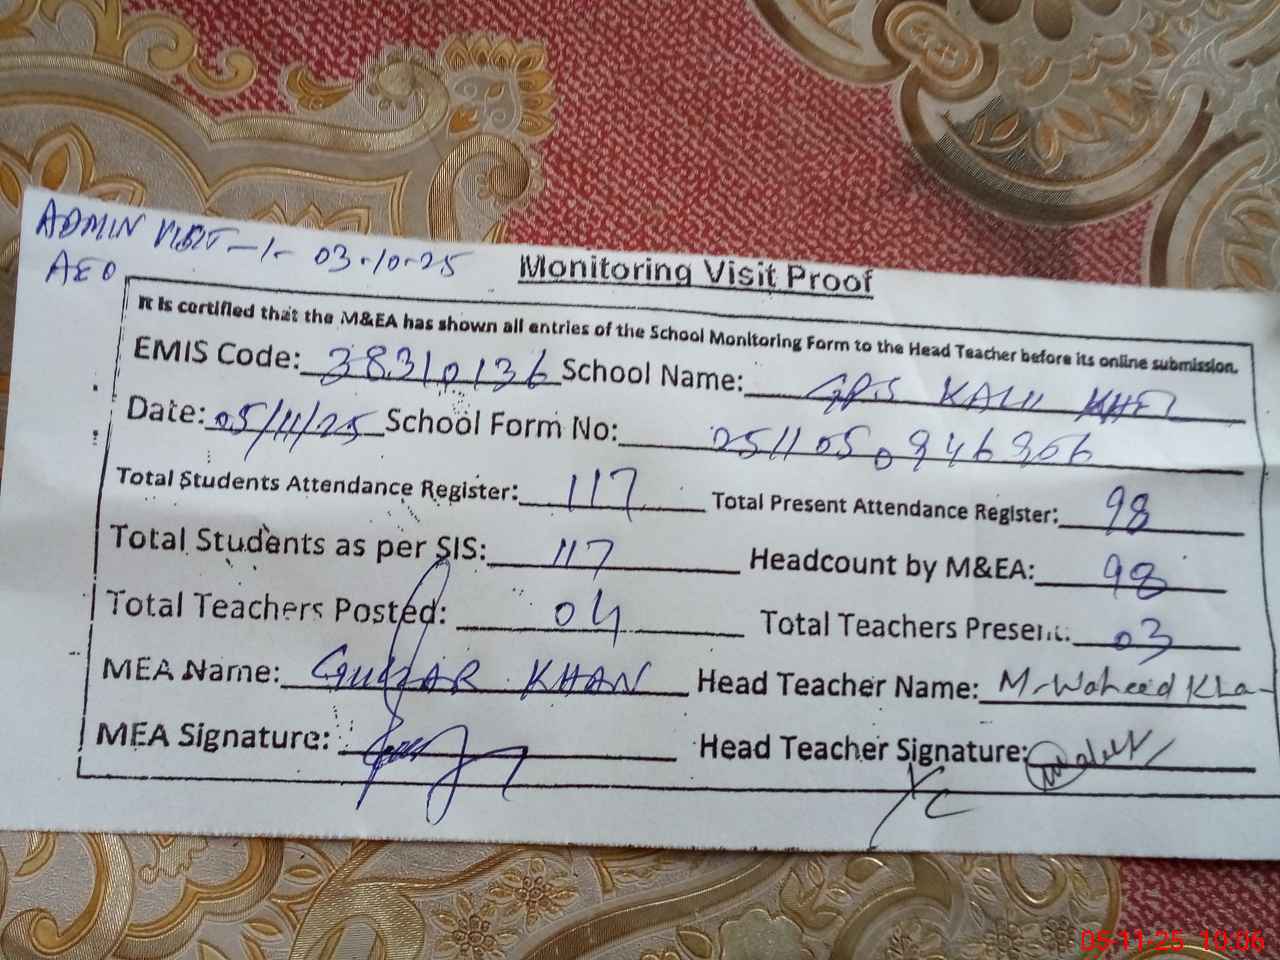 ADMIN VISIT -1- 03.10.25
AEO
Monitoring Visit Proof
It is certified that the M&EA has shown all entries of the School Monitoring Form to the Head Teacher before its online submission.
EMIS Code: 38310136 School Name: GPS KALU KHEL
Date: 05/11/25 School Form No:
Total Students Attendance Register: 117 Total Present Attendance Register: 98
Total Students as per SIS: 117 Headcount by M&EA: 98
Total Teachers Posted: 04 Total Teachers Present: 03
MEA Name: GULZAR KHAN Head Teacher Name: M. Waheed Kha
MEA Signature: Head Teacher Signature:
05-11-25 10:06